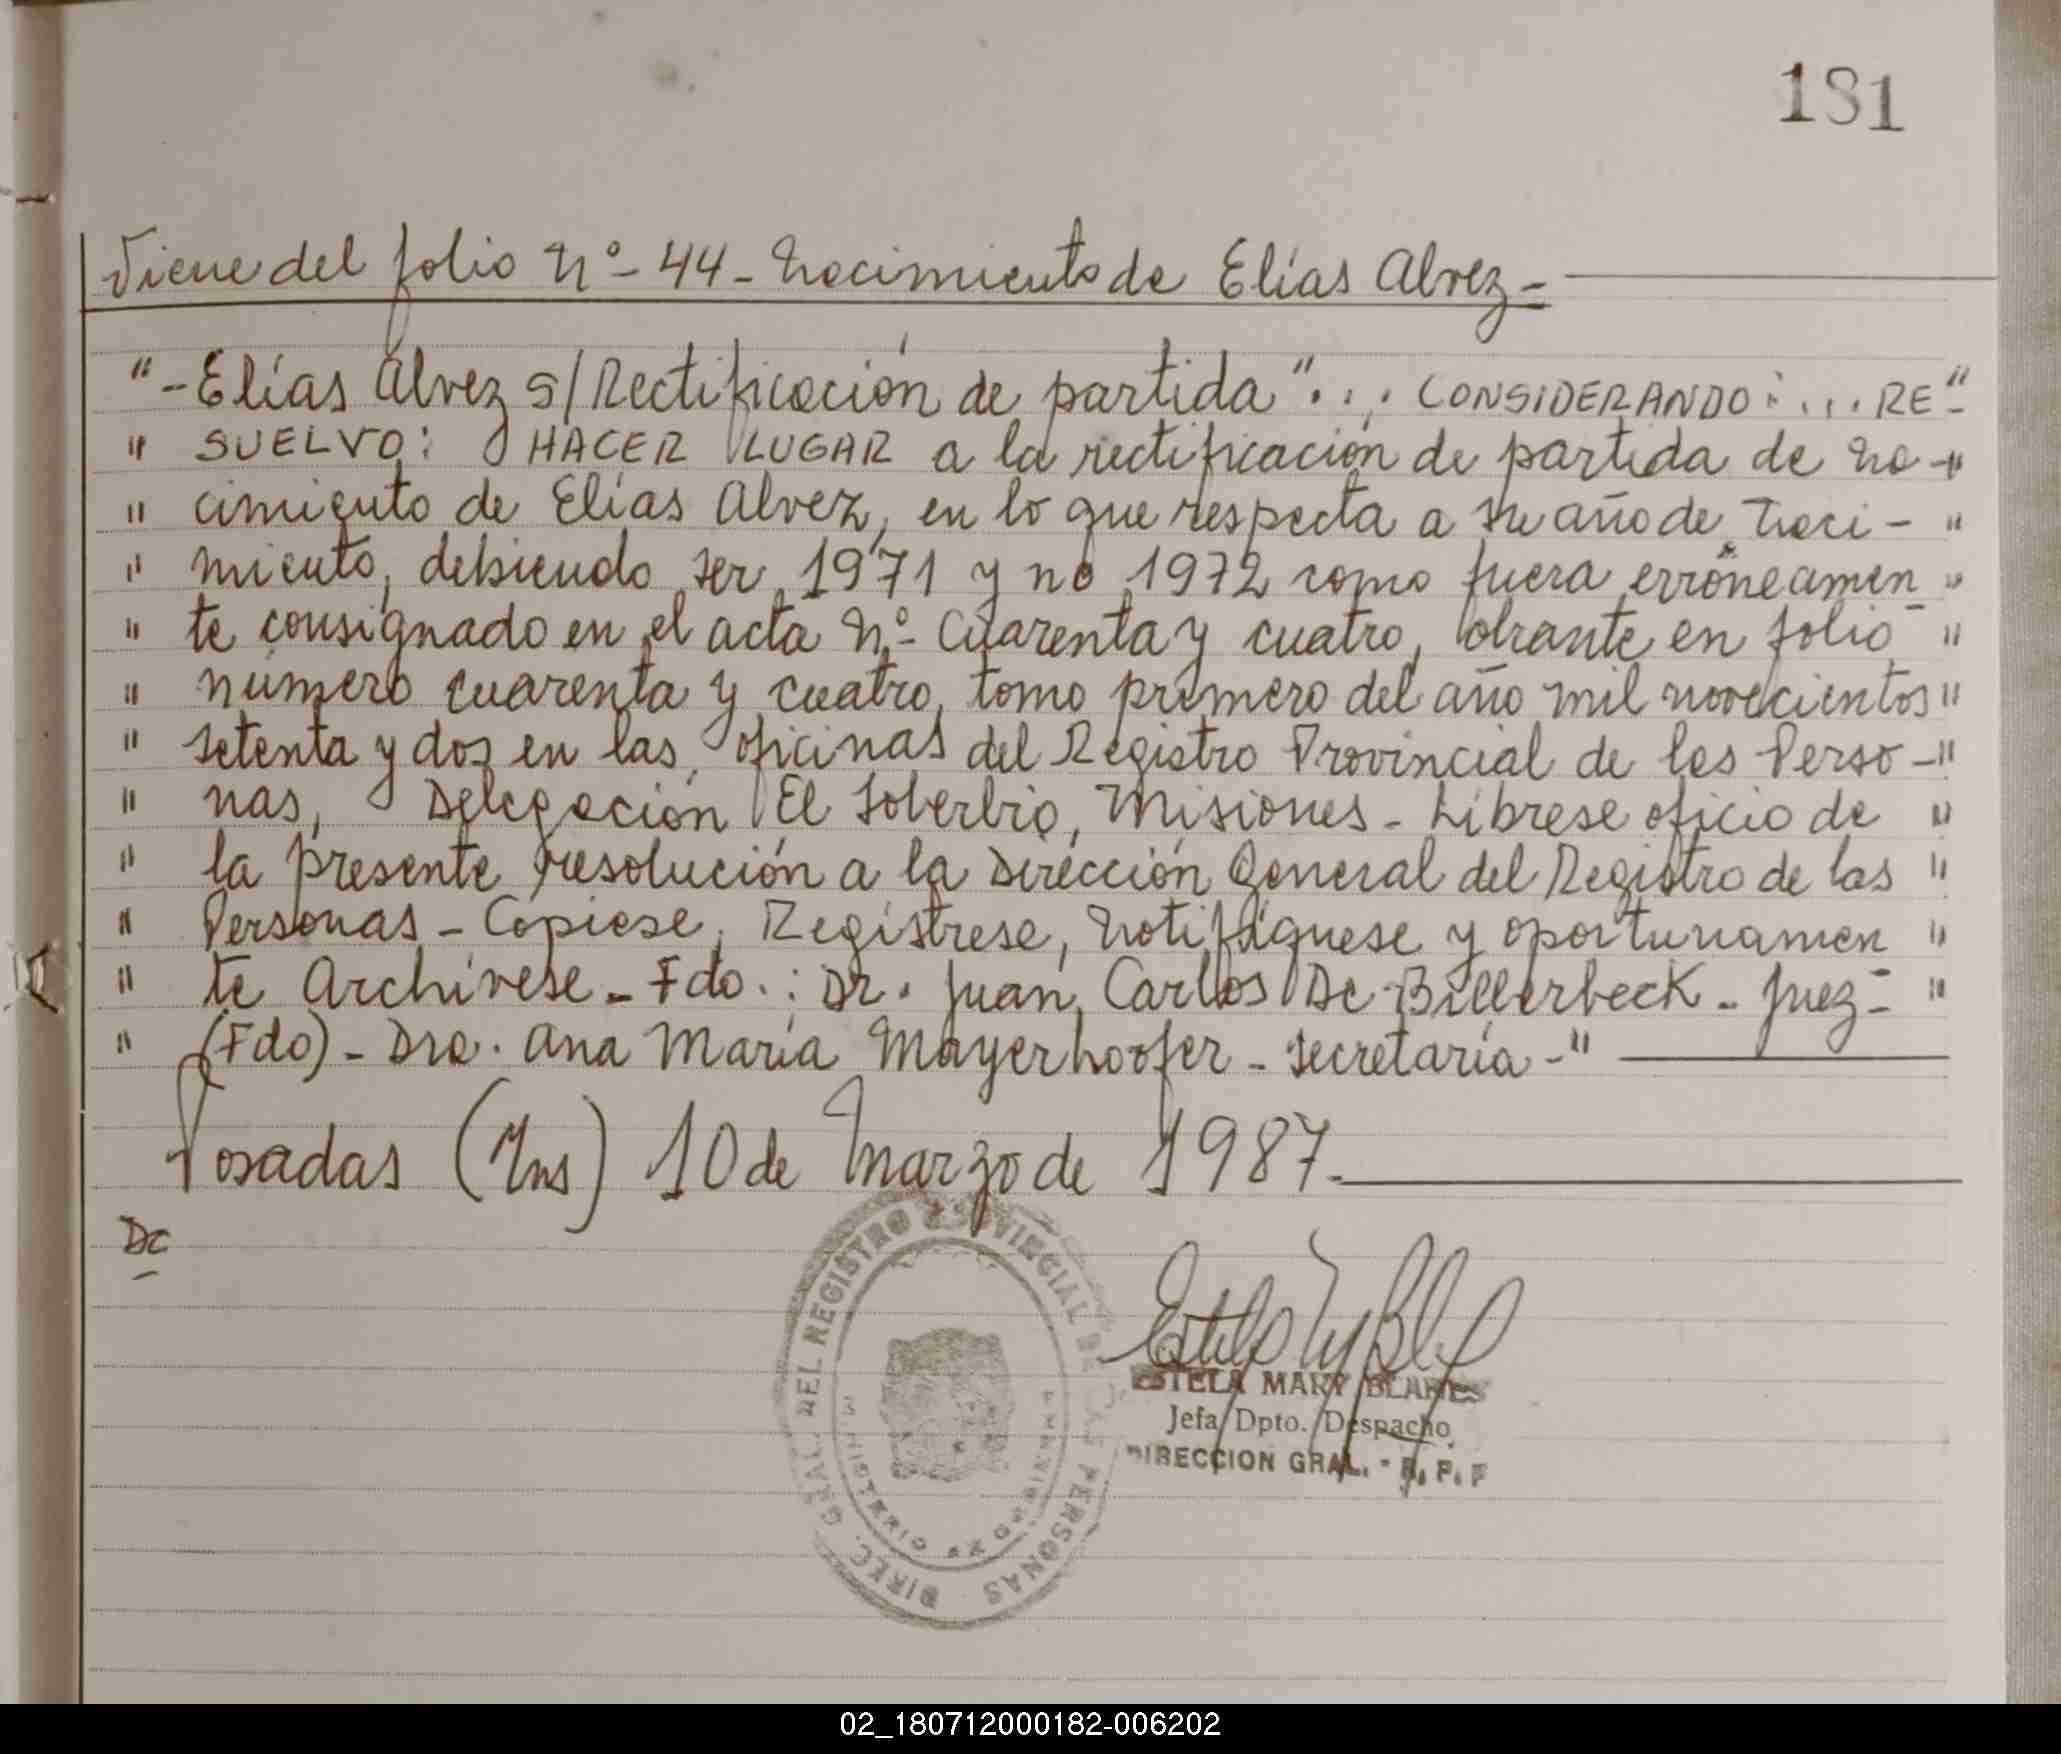 181
Viene del folio Nº- 44 - Nacimiento de Elías Alvez -
"- Elías Alvez S/ Rectificación de partida"... CONSIDERANDO:... RE- "
" SUELVO: HACER LUGAR a la rectificación de partida de na- "
" cimiento de Elías Alvez, en lo que respecta a su año de naci- "
" miento, debiendo ser 1971 y no 1972 como fuera erróneamen- "
" te consignado en el acta Nº- Cuarenta y cuatro, obrante en folio "
" número cuarenta y cuatro, tomo primero del año mil novecientos "
" setenta y dos en las oficinas del Registro Provincial de las Perso- "
" nas, Delegación El Soberbio, Misiones - Líbrese oficio de "
" la presente resolución a la Dirección General del Registro de las "
" Personas - Cópiese, Regístrese, Notifíquese y oportunamen- "
" te Archívese - Fdo.: Dr. Juan Carlos De Billerbeck - Juez- "
" (Fdo) - Dra. Ana María Mayerhoofer - Secretaría -"
Posadas (Mns) 10 de Marzo de 1987.-
DC
DIREC. GRAL. DEL REGISTRO PROVINCIAL DE LAS PERSONAS
MINISTERIO DE GOBIERNO
ESTELA MARY
Jefa Dpto. Despacho
DIRECCION GRAL. - R. P. P
02_180712000182-006202